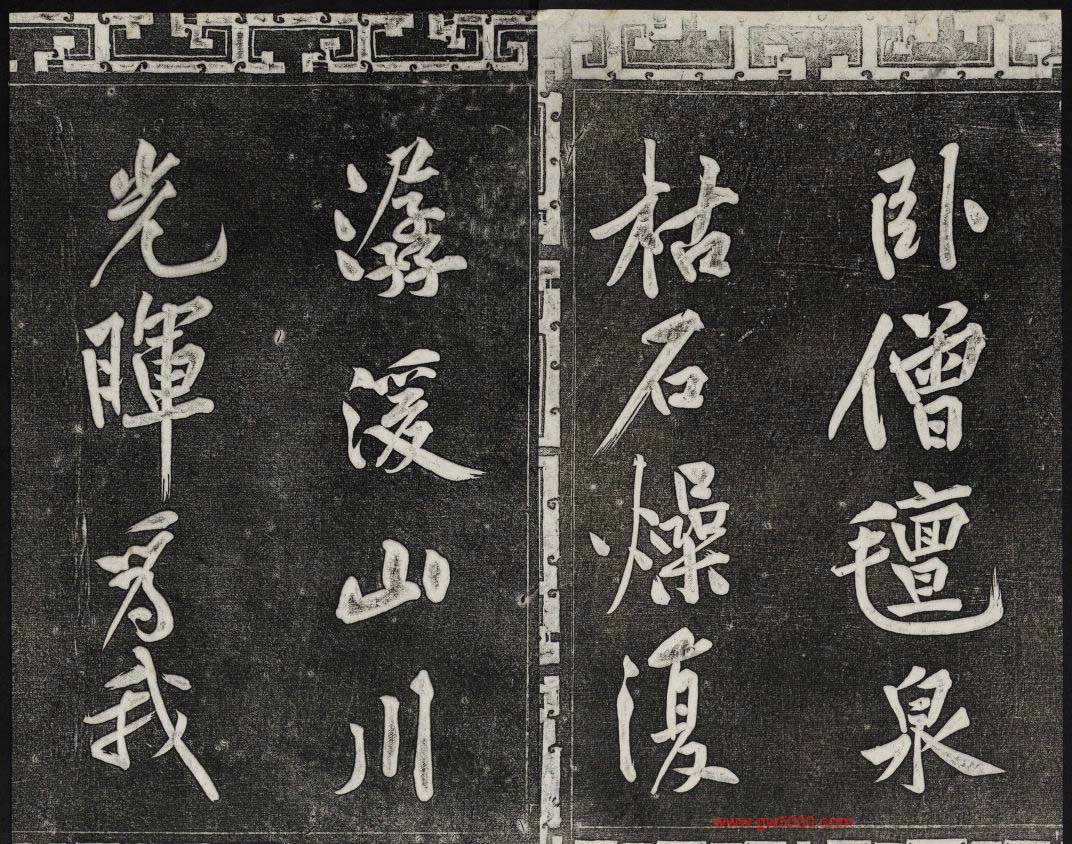 卧僧氈泉
枯石燥復
潺湲山川
光暉為我
www.gw5000.com